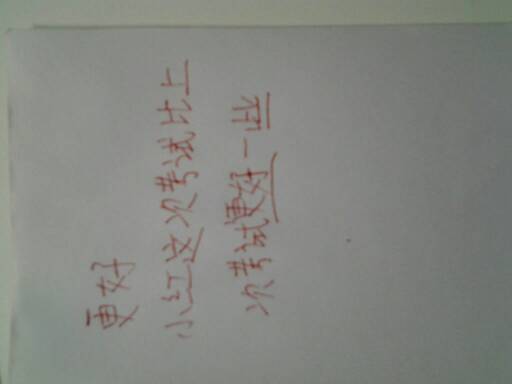 更好
小红这次考试比上
次考试更好一些